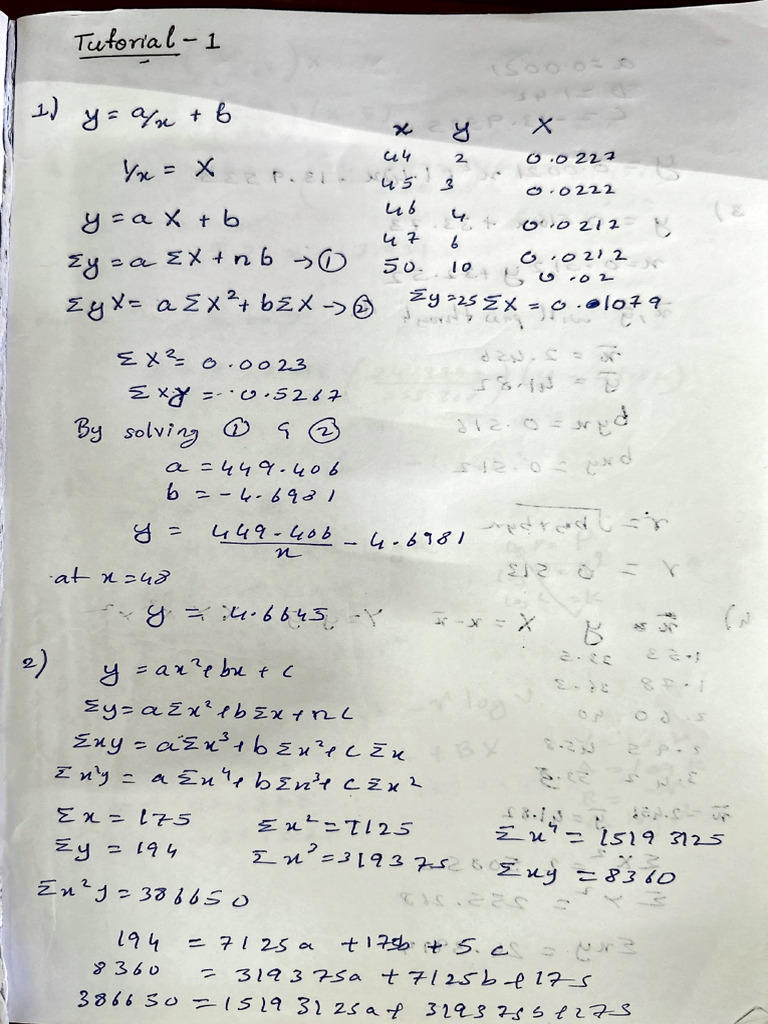 Tutorial - 1
1) y = a/x + b
x y X
1/x = X
44 2 0.0227
45 3 0.0222
y = a X + b
46 4 0.0212
47 6 0.0212
Σy = a ΣX + n b → ①
50 10 0.02
ΣyX = a ΣX² + b ΣX → ②
Σy = 25 ΣX = 0.1079
ΣX² = 0.0023
ΣXy = 0.5267
By solving ① & ②
a = 449.406
b = -4.6981
y = 449.406/x - 4.6981
at x = 48
y = 4.6645
2) y = ax² + bx + c
Σy = aΣx² + bΣx + nc
Σxy = aΣx³ + bΣx² + cΣx
Σx²y = aΣx⁴ + bΣx³ + cΣx²
Σx = 175 Σx² = 7125 Σx⁴ = 15193125
Σy = 194 Σx³ = 319375 Σxy = 8360
Σx²y = 386650
194 = 7125a + 175b + 5c
8360 = 319375a + 7125b + 175
386650 = 15193125a + 319375b + 175